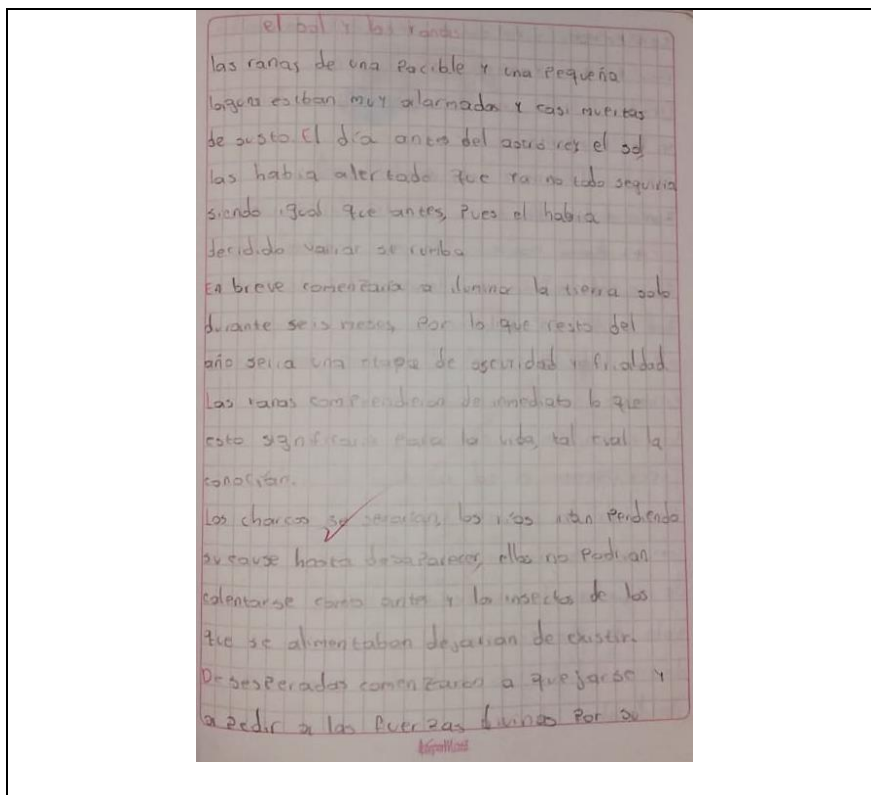 el sol y las ranas
las ranas de una Pacible y una Pequeña
laguna estban muy alarmadas y casi muertas
de susto. El día antes del rey el sol
las habia alertado que ya no todo seguiria
siendo igual que antes, Pues el habia
decidido variar su rumbo
En breve comenzaria a iluminar la tierra solo
durante seis meses, Por lo que resto del
año seria una etapa de oscuridad y frialdad
Las ranas comprendieron de inmediato lo que
esto significaria Para la vida, tal cual la
conocian.
Los charcos se secarian, los rios irian Perdiendo
su cause hasta desaparecer, ellas no Podian
calentarse como antes y los insectos de los
que se alimentaban dejarian de existir.
Desesperadas comenzaron a quejarse y
a pedir a las Fuerzas divinas Por su